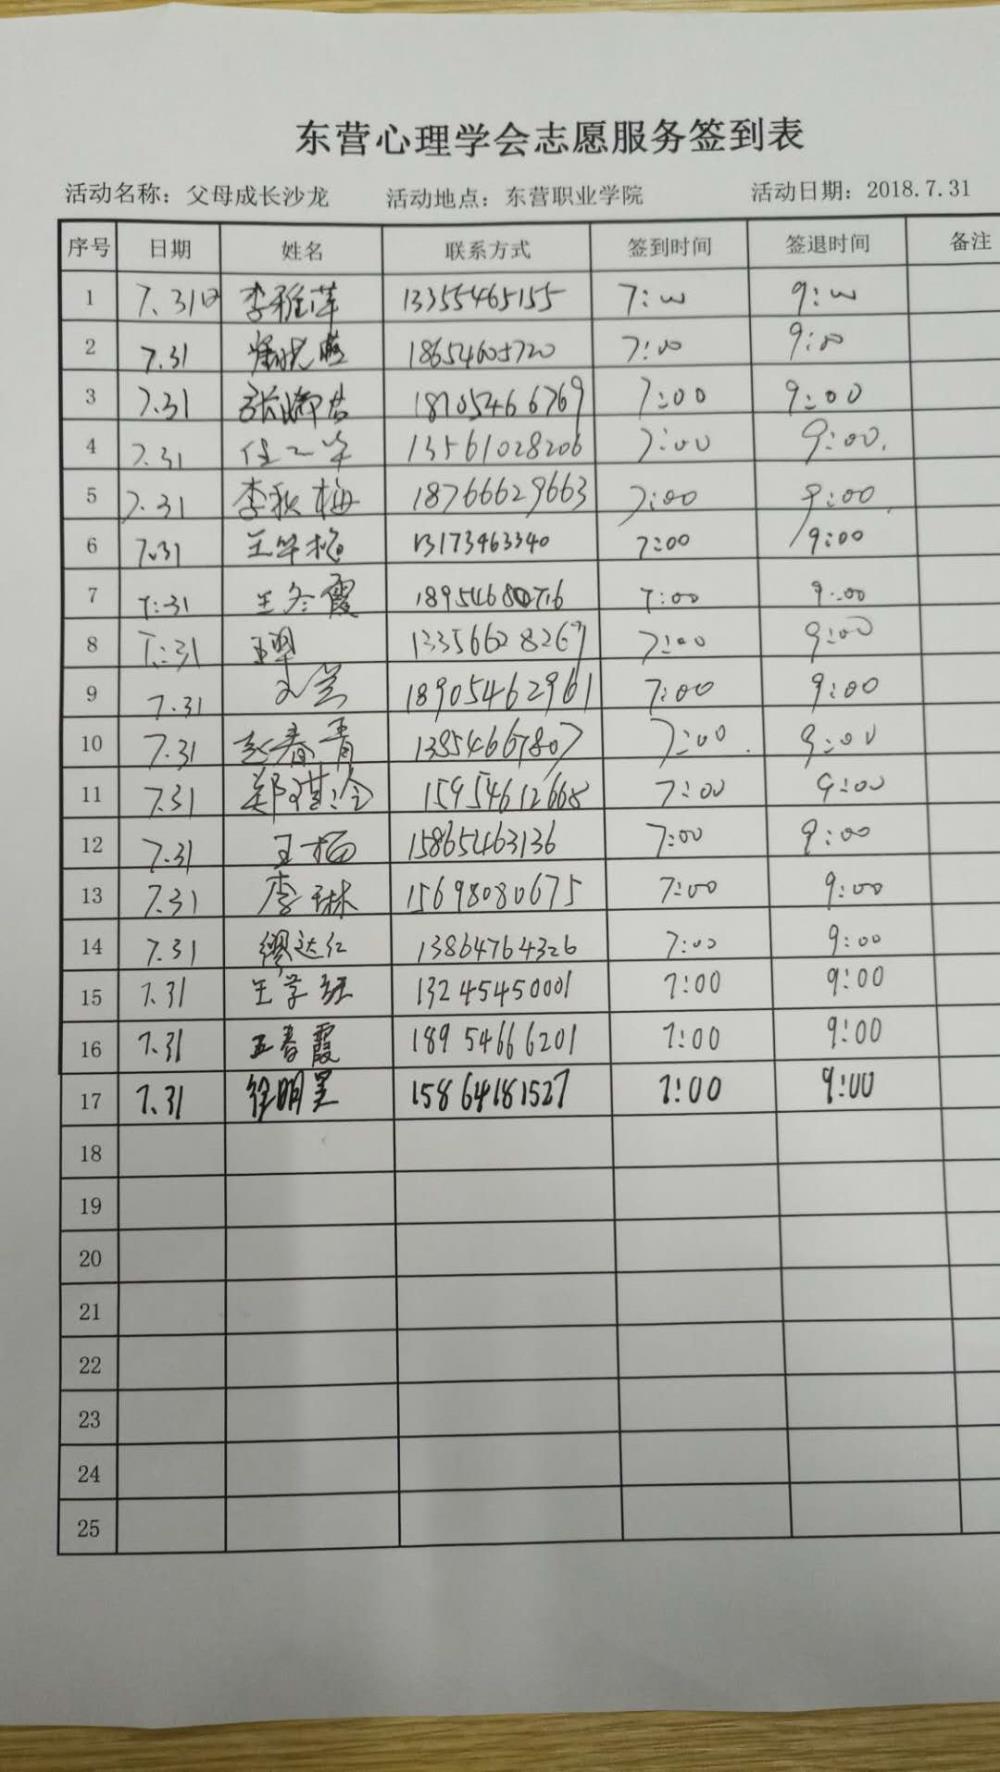 东营心理学会志愿服务签到表
活动名称：父母成长沙龙 活动地点：东营职业学院 活动日期：2018.7.31
序号 日期 姓名 联系方式 签到时间 签退时间 备注
1 7.31日 李雅萍 13355465155 7:00 9:00
2 7.31 18654605720 7:00 9:00
3 7.31 18705466769 7:00 9:00
4 7.31 13561028206 7:00 9:00.
5 7.31 李秋梅 18766629663 7:00 9:00
6 7.31 13173463340 7:00 9:00
7 7:31 王冬霞 7:00 9:00
8 7:31 13356628269 7:00 9:00
9 7.31 18905462961 7:00 9:00
10 7.31 赵春青 13854667807 7:00 9:00
11 7.31 郑琪冷 15954612668 7:00 9:00
12 7.31 王梅 15865463136 7:00 9:00
13 7.31 李琳 15698080675 7:00 9:00
14 7.31 缪达红 13864764326 7:00 9:00
15 7.31 王学 13245450001 7:00 9:00
16 7.31 王春霞 18954666201 7:00 9:00
17 7.31 徐明 15864181527 7:00 9:00
18
19
20
21
22
23
24
25